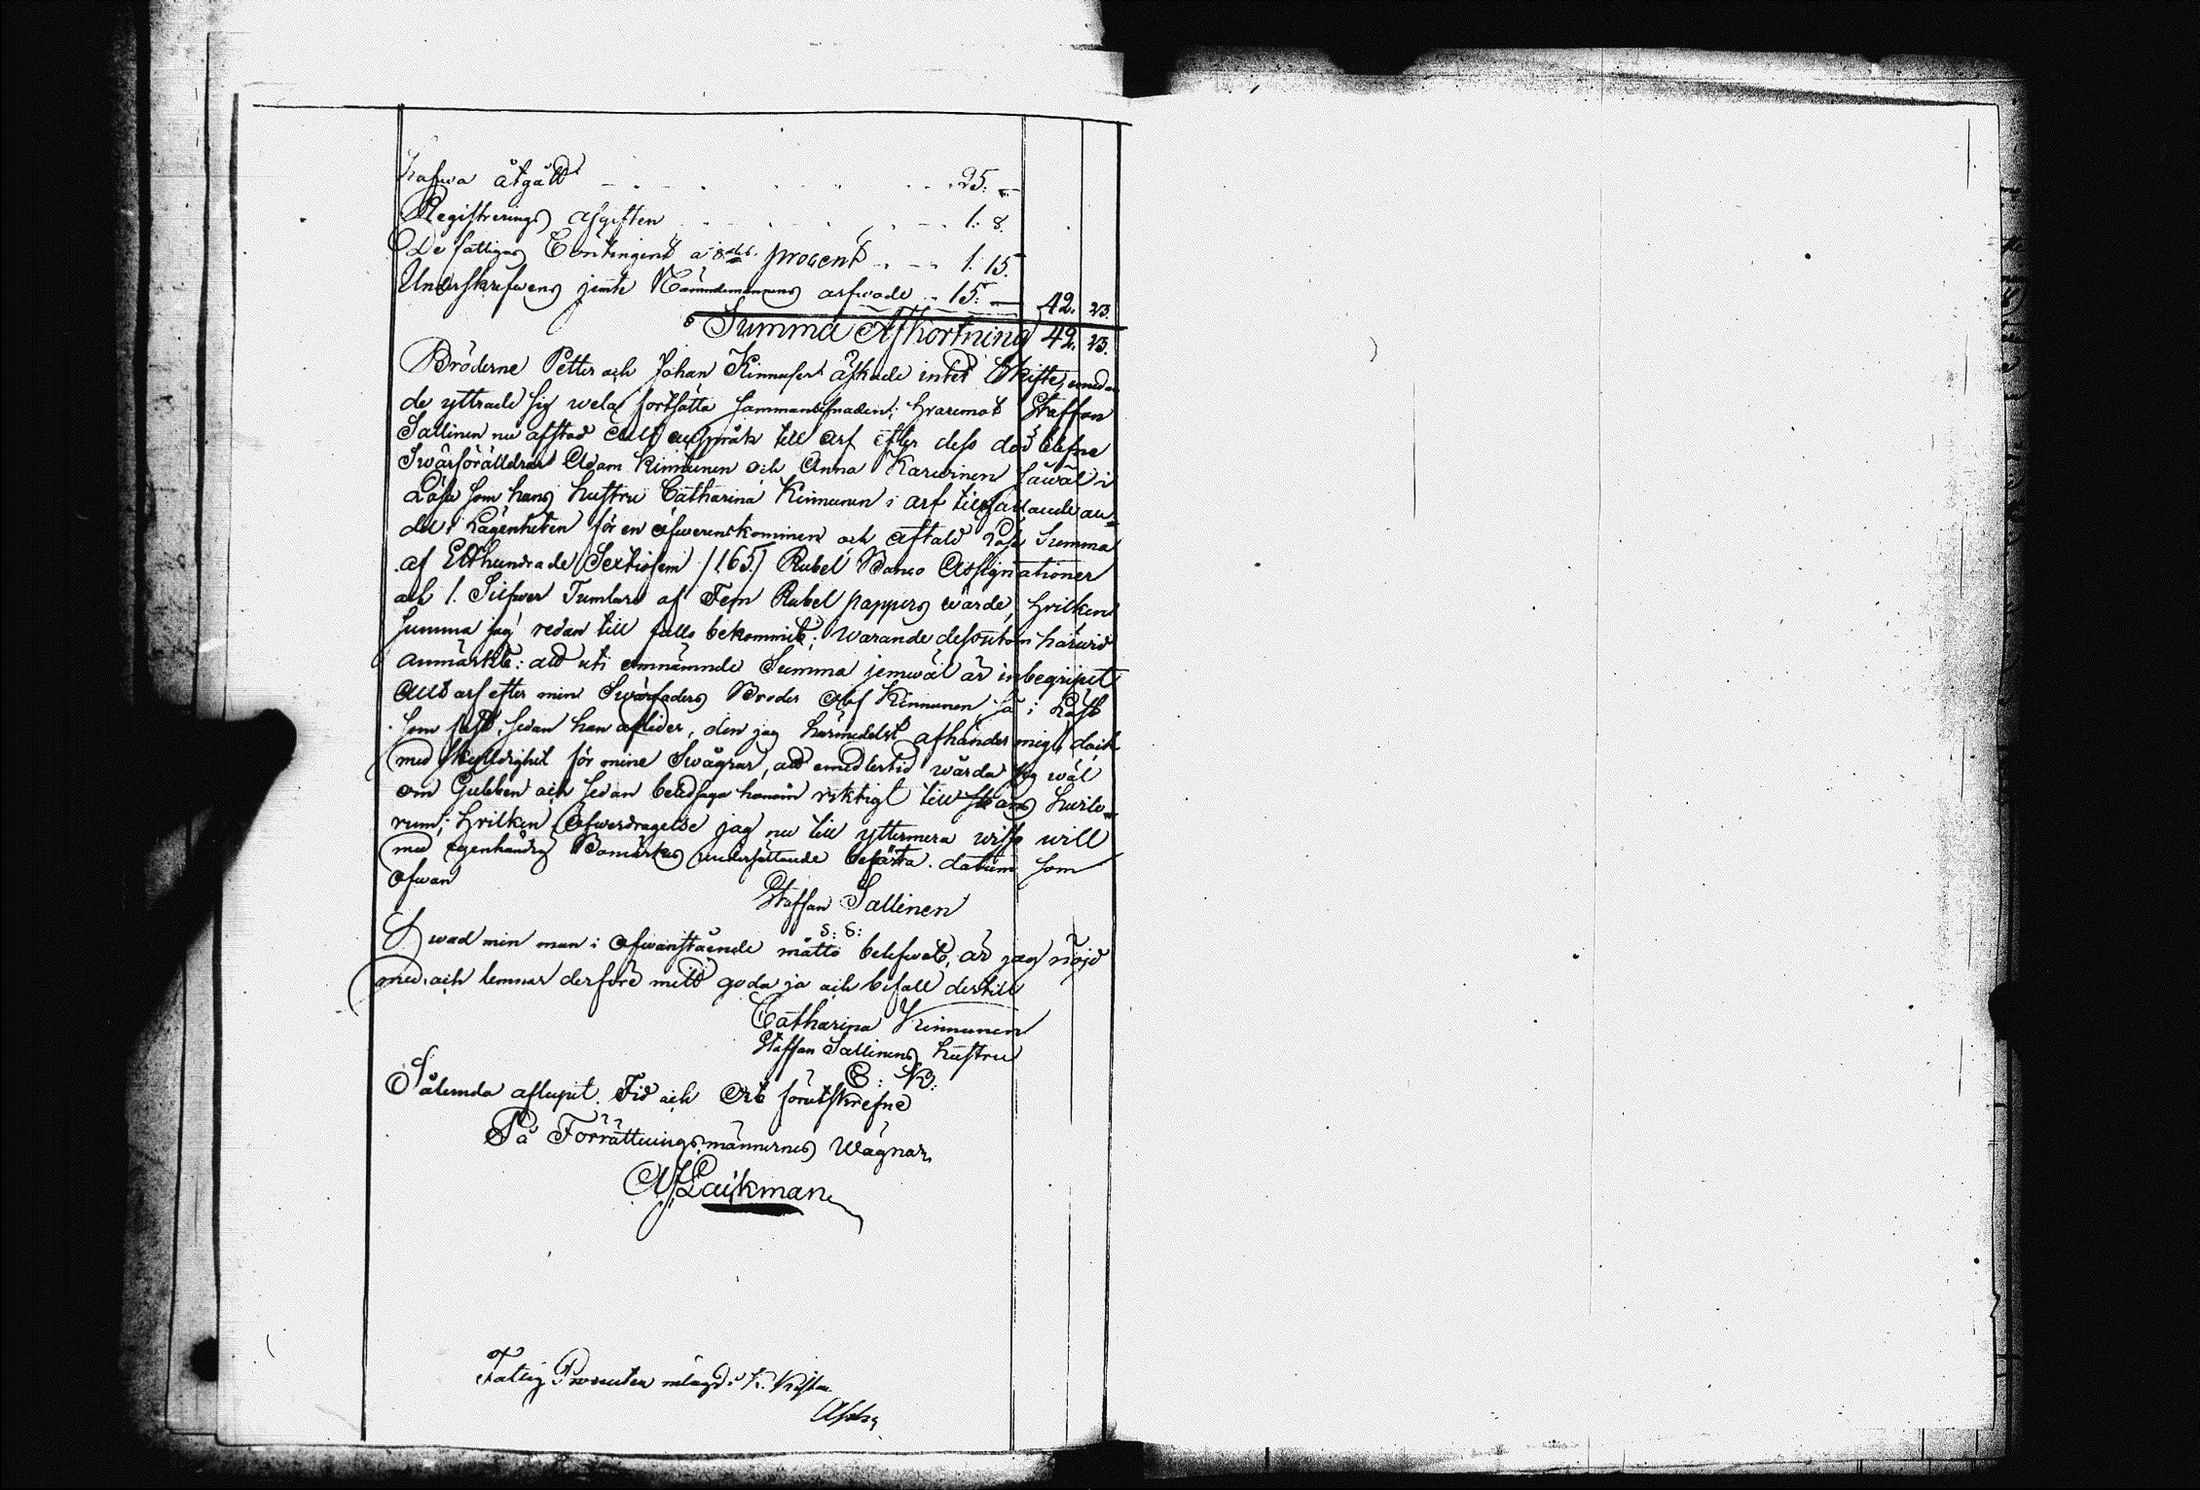 hafwa åtgått - - - 25: -
Registrerings afgiften - - - 1: 8.
De fattigas Contingent a 8del. procent - - 1: 15.
Underskrifwens jemte Nämndemannens arfwode - 15: - 42. 23.
Summa Afkortning 42. 23.
Bröderne Petter och Johan Kinnuser äskade intet Skifte, emedan
de yttrade sig wela fortsätta sammanlefnaden; hvaremot Staffan
Sallinen nu afstod allt anspråk till arf efter dess död blefne
Swärföräldrar Adam Kinnunen och Anna Karwinen såwäl i
Löst som hans hustru Catharina Kinnunen i arf tillfallande an-
del i Lägenheten för en öfwerenskommen och aftald Lösa Summa
af Etthundrade Sextiofem /165/ Rubel Banco Assignationer
och 1. Silfwer Tumlare af Fem Rubel pappers wärde, hvilken
summa jag redan till fullo bekommit; warande dessutom härwid
anmärkt: att uti omnämnde Summa jemwäl är inbegripit
Allt arf efter min Swärfaders Broder Olof Kinnunen så i Löst
som fast, sedan han aflider, den jag härmedelst afhänder mig, dock
med skylldighet för mine Swågrar, att emedlertid wårda sig wäl
om Gubben och sedan beledsaga honom riktigt till hans hwilo-
rum; hvilken Öfwerdragelse jag nu till yttermera wisso will
med egenhändig Bomärkes undersättande bekräfta. datum som
ofwan
Staffan Sallinen
S: S:
Hwad min man i ofwanstående måtto belefwat, är jag nöjd
med och lemnar derföre mitt goda ja och bifall dertill
Catharina Kinnunen
Staffan Sallinens hustru
C: K:
Sålunda aflupit. Tid och Ort förutskrefne
På Förrättningsmännernes Wägnar
Laikman
Fattig Procenten i K. Kistan